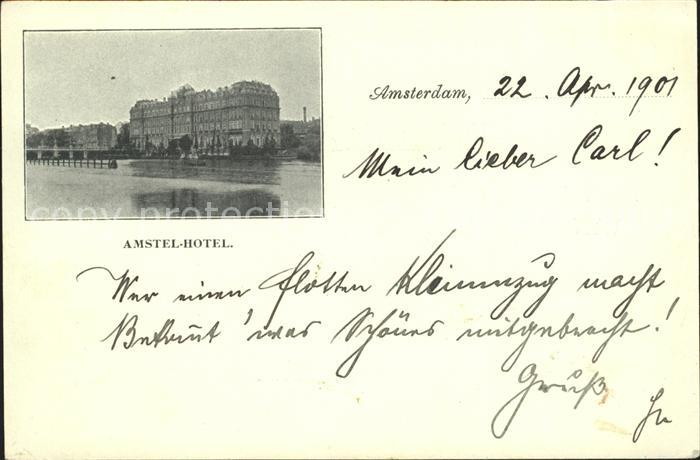 Amsterdam, 22. Apr. 1901
Mein lieber Carl!
AMSTEL-HOTEL.
Wer einen flotten Klimmzug macht
'was Schönes mitgebracht!
Gruß
copy protection